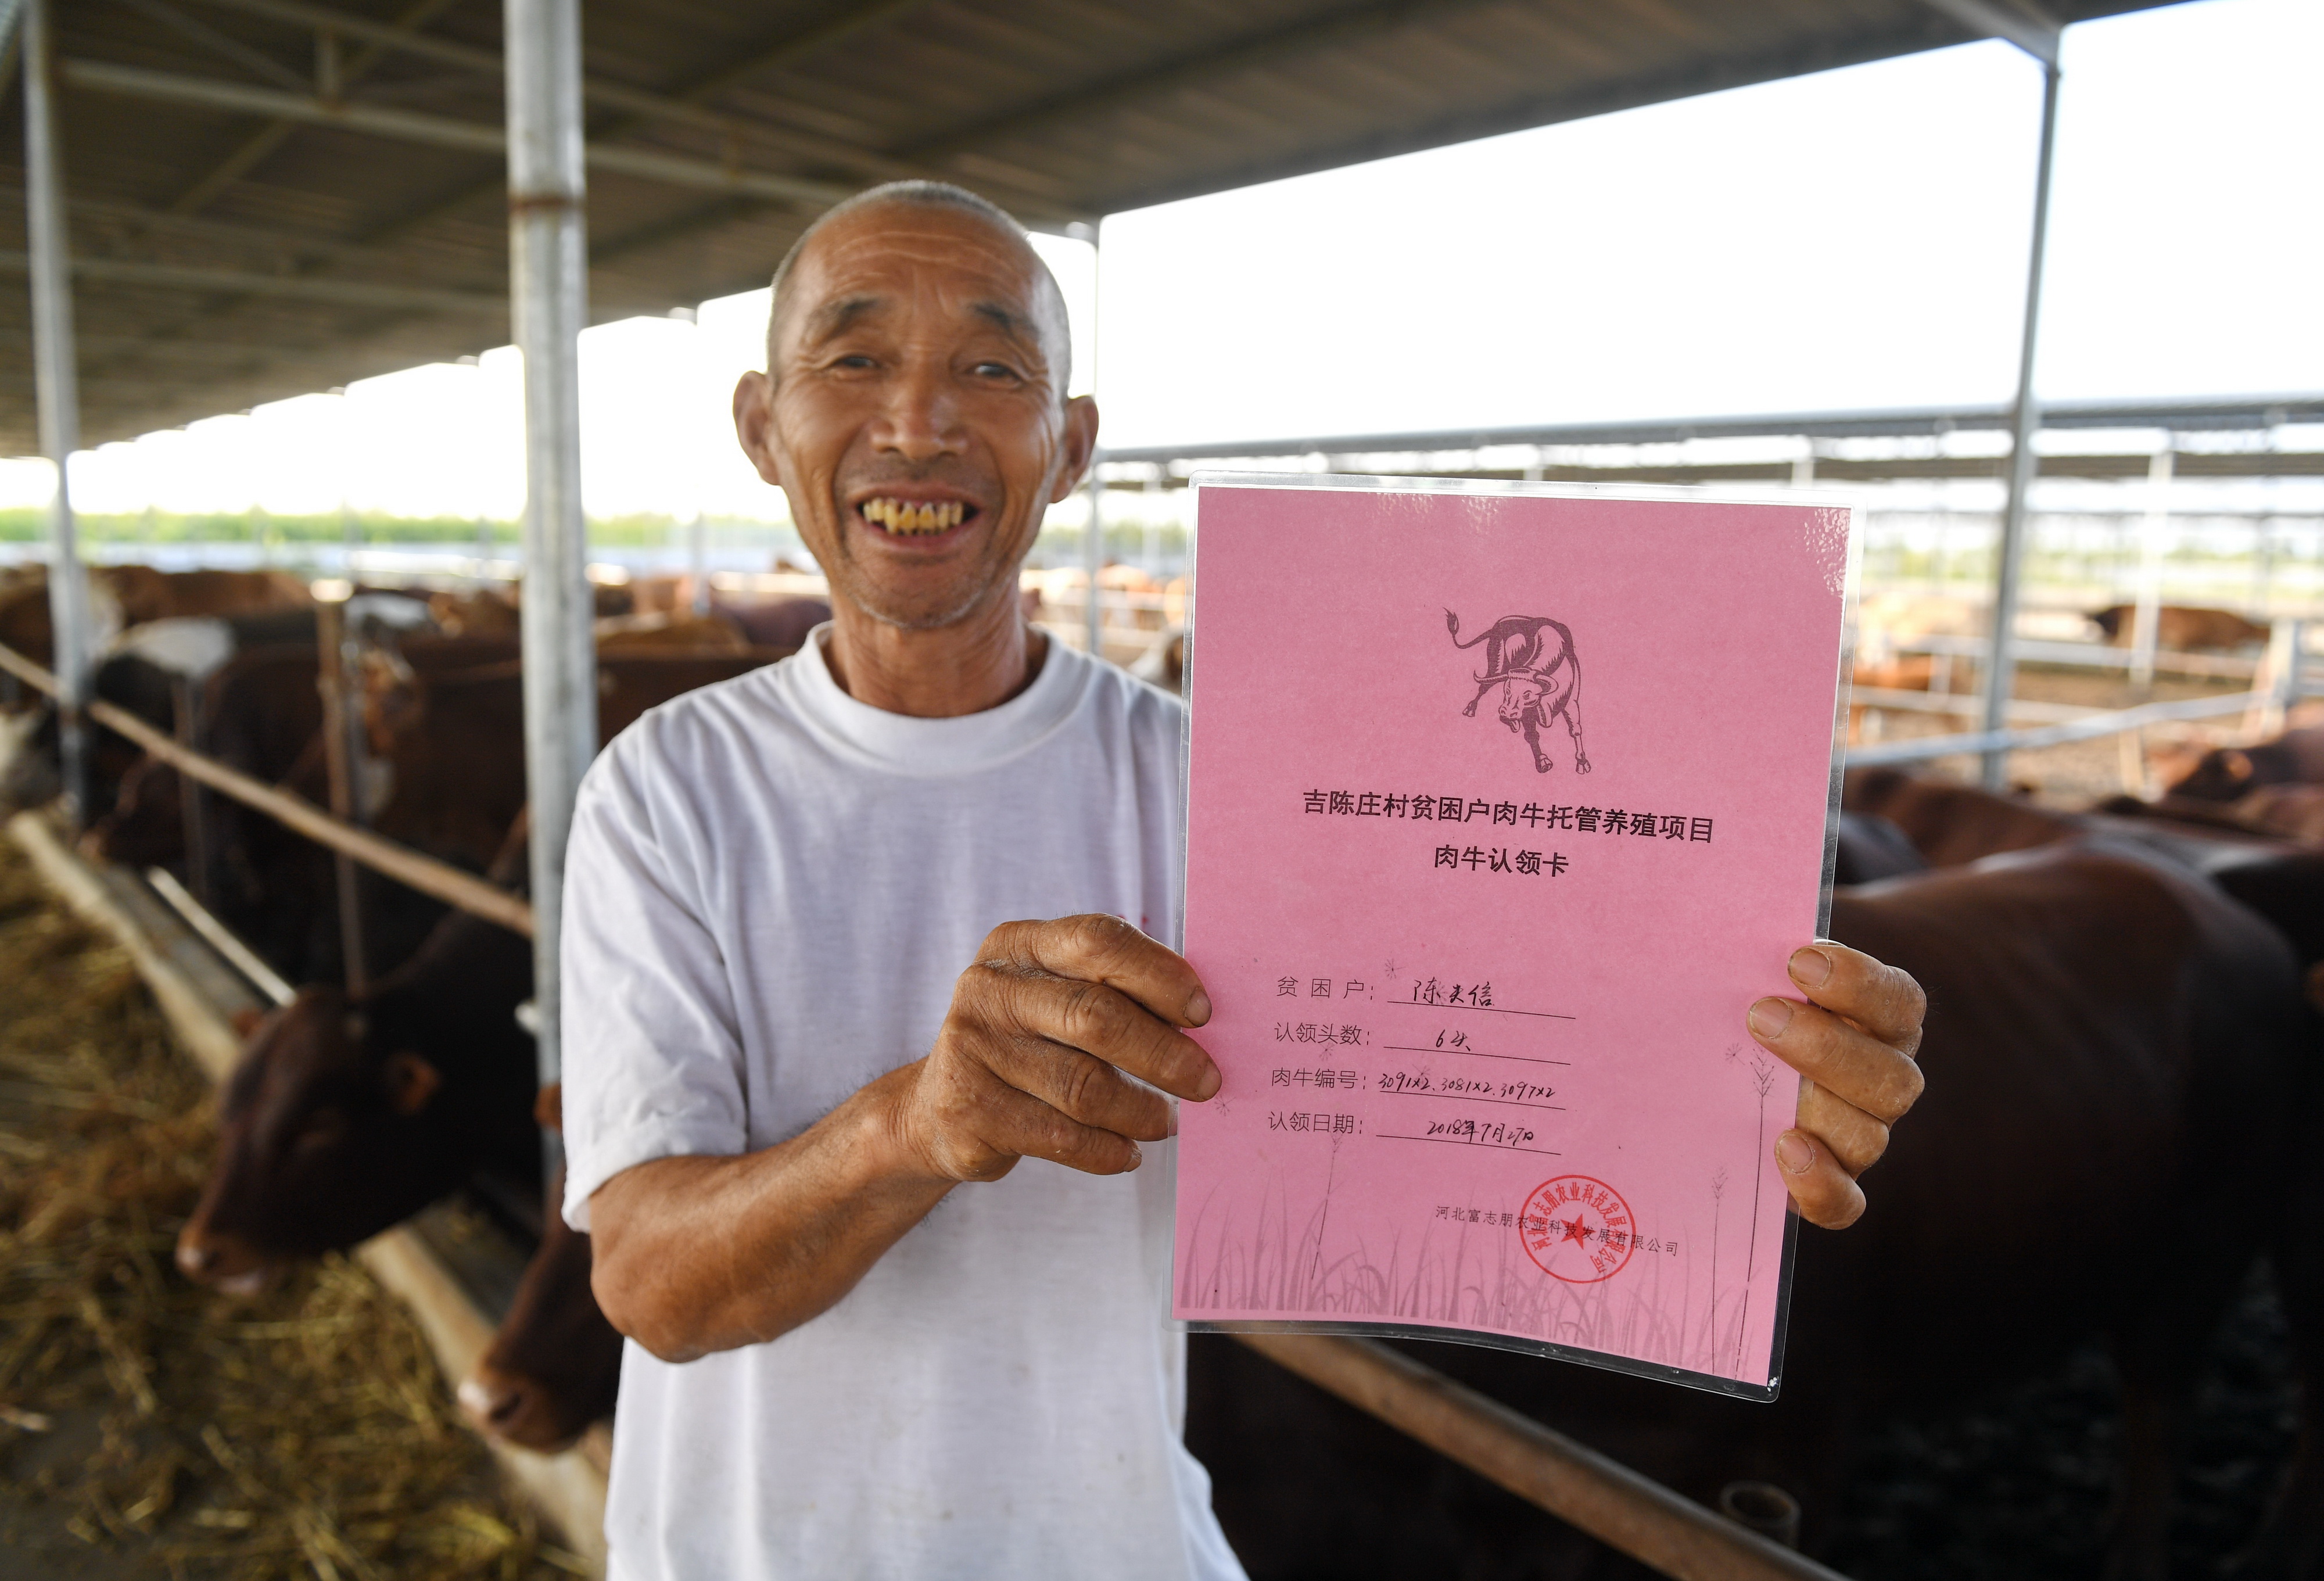 吉陈庄村贫困户肉牛托管养殖项目
肉牛认领卡
贫困户：陈夫信
认领头数：6头
肉牛编号：3091x2.3081x2.3097x2
认领日期：2018年9月27日
河北富志朋农业科技发展有限公司
河北富志朋农业科技发展有限公司